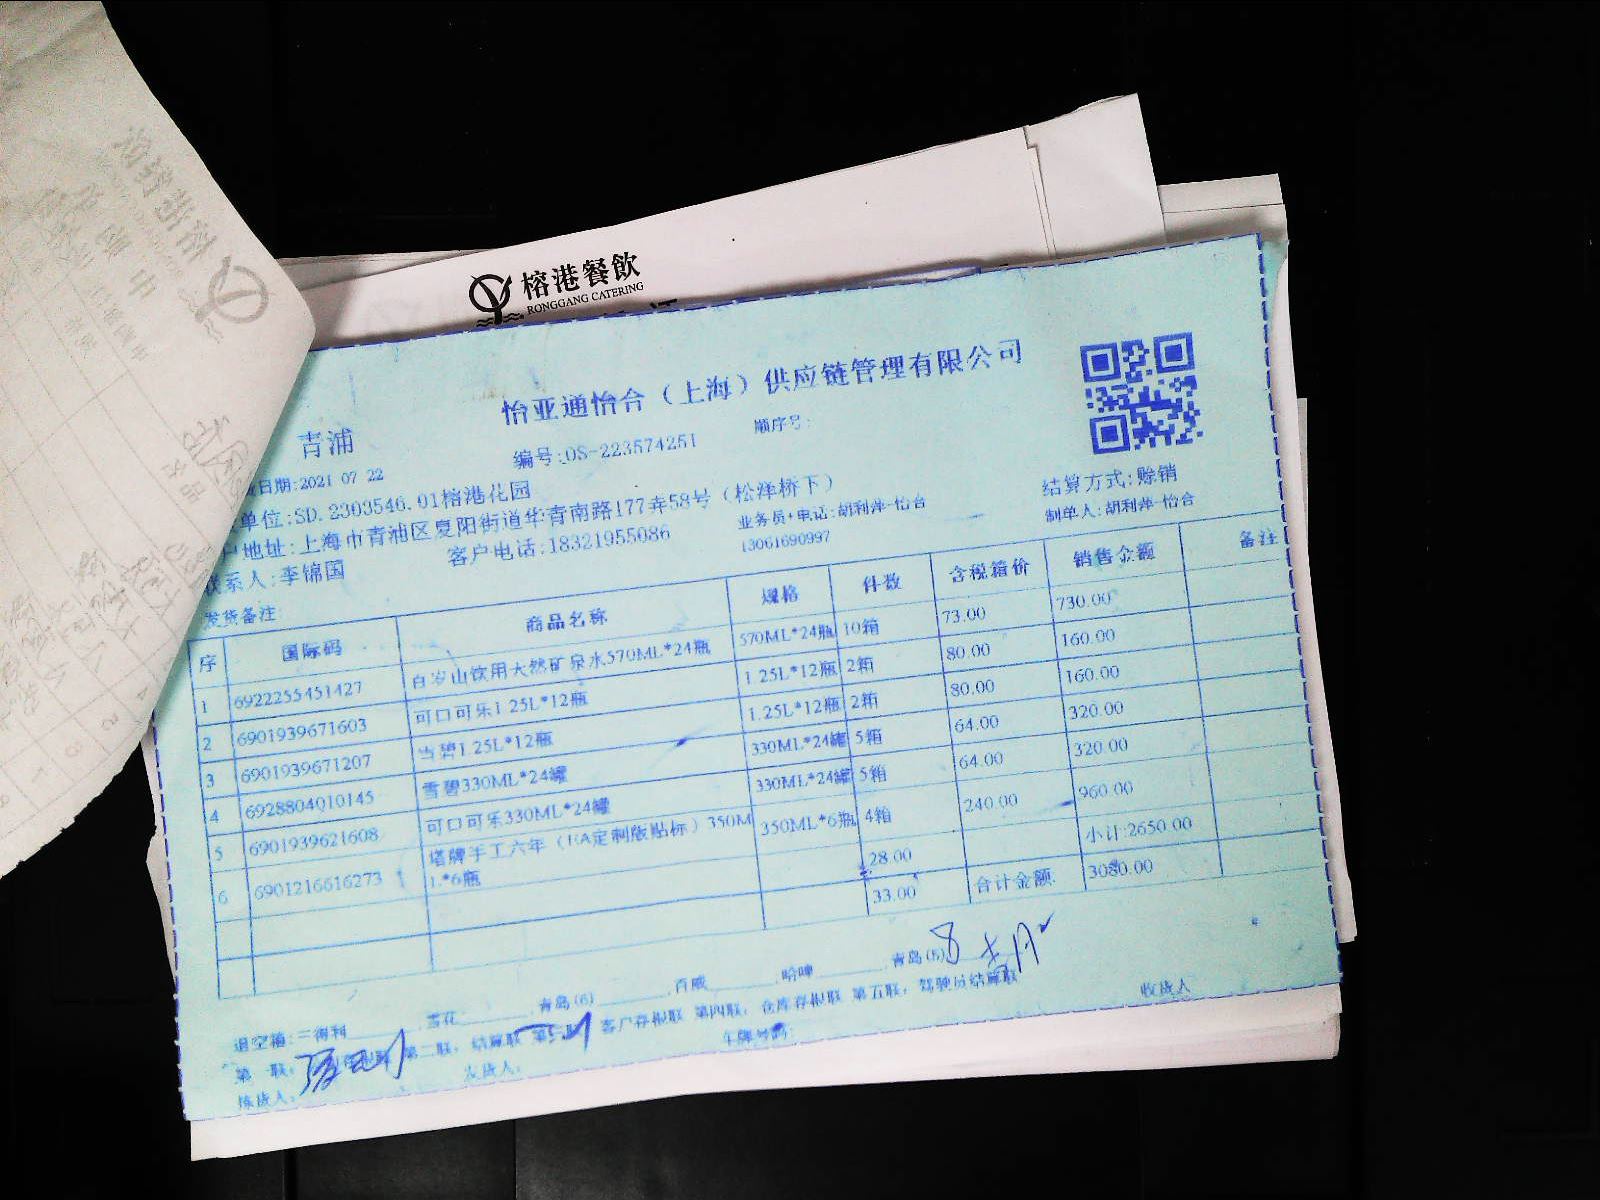 榕港餐飲
RONGGANG CATERING
怡亚通怡合（上海）供应链管理有限公司
青浦
编号:OS-223574251
顺序号:
日期:2021 07 22
单位:SD.2303546.01榕港花园
结算方式:赊销
户地址:上海市青浦区夏阳街道华青南路177弄58号（松泽桥下）
业务员+电话:胡利萍-怡合
制单人:胡利萍-怡合
联系人:李锦国
客户电话:18321955086
13061690997
发货备注:
序 国际码 商品名称 规格 件数 含税箱价 销售金额 备注
1 6922255451427 百岁山饮用天然矿泉水570ML*24瓶 570ML*24瓶 10箱 73.00 730.00
2 6901939671603 可口可乐1.25L*12瓶 1.25L*12瓶 2箱 80.00 160.00
3 6901939671207 雪碧1.25L*12瓶 1.25L*12瓶 2箱 80.00 160.00
4 6928804010145 雪碧330ML*24罐 330ML*24罐 5箱 64.00 320.00
5 6901939621608 可口可乐330ML*24罐 330ML*24罐 5箱 64.00 320.00
6 6901216616273 塔牌手工六年（KA定制版贴标）350M
L*6瓶 350ML*6瓶 4箱 240.00 960.00
28.00 小计:2650.00
33.00 合计金额: 3080.00
退空箱:三得利 雪花 青岛(6) 百威 哈啤 青岛(5) 8
第一联: 第二联：结算联 客户存根联 第四联：仓库存根联 第五联：驾驶员结算联
拣货人: 发货人: 车牌号码: 收货人